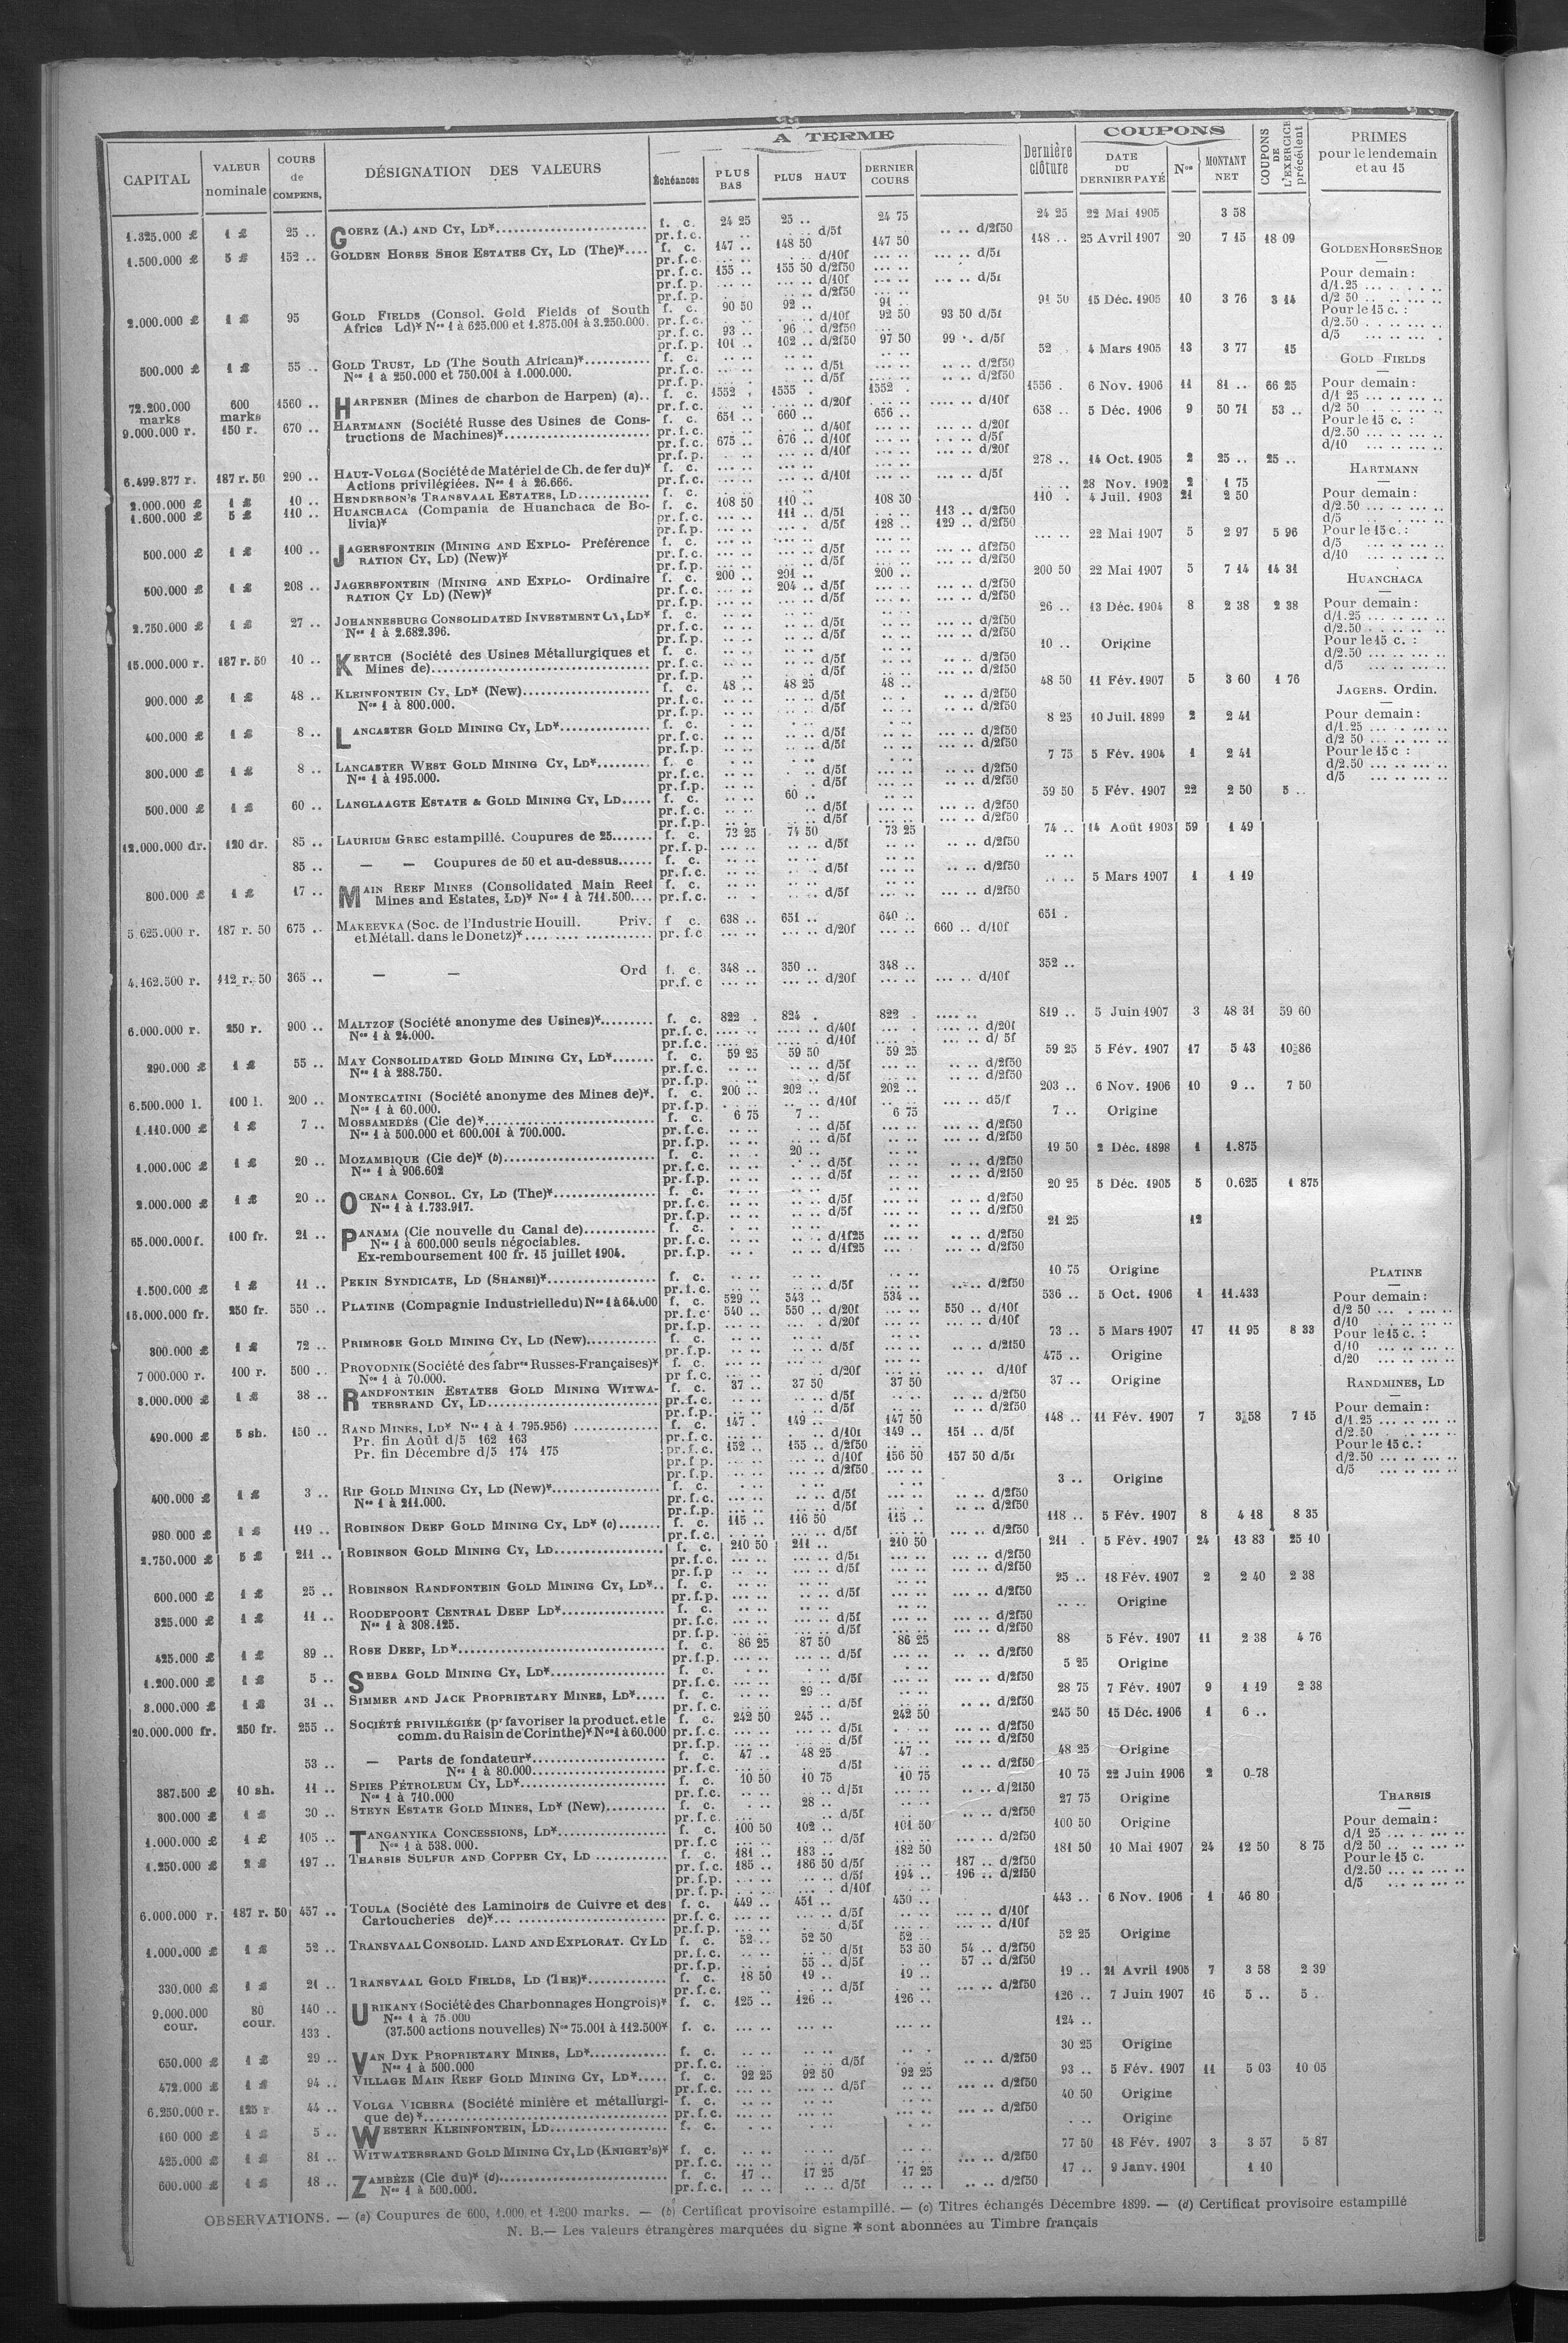 A TERME
COUPONS
CAPITAL
VALEUR nominale
COURS de COMPENS.
DÉSIGNATION DES VALEURS
Échéances
PLUS BAS
PLUS HAUT
DERNIER COURS
Dernière clôture
DATE DU DERNIER PAYÉ
Nos
MONTANT NET
COUPONS DE L'EXERCICE précédent
PRIMES pour le lendemain et au 15
1.325.000 £ 1 £ 25 .. GOERZ (A.) AND CY, LD* f. c. 24 25 25 .. 24 75 24 25 22 Mai 1905 3 58
pr.f.c. d/5f d/2f50
1.500.000 £ 5 £ 152 .. GOLDEN HORSE SHOE ESTATES CY, LD (The)* f. c. 147 .. 148 50 147 50 148 .. 25 Avril 1907 20 7 15 18 09
pr.f.c. d/10f d/5f
pr.f.c. 155 .. 155 50 d/2f50
pr.f.p. d/10f d/5f
pr.f.p. d/2f50
2.000.000 £ 1 £ 95 GOLD FIELDS (Consol. Gold Fields of South f. c. 90 50 92 .. 91 .. 91 50 15 Déc. 1905 10 3 76 3 14
Africa Ld)* Nos 1 à 625.000 et 1.875.001 à 3.250.000. pr.f.c. d/10f 92 50 93 50 d/5f
pr.f.c. 93 .. 96 .. d/2f50
pr.f.p. 101 .. 102 .. d/2f50 97 50 99 .. d/5f
500.000 £ 1 £ 55 .. GOLD TRUST, LD (The South African)* f. c. 52 . 4 Mars 1905 13 3 77 15
Nos 1 à 250.000 et 750.001 à 1.000.000. pr.f.c. d/5f d/2f50
pr.f.p. d/5f d/2f50
72.200.000 marks 600 marks 1560 .. HARPENER (Mines de charbon de Harpen) (a).. f. c. 1552 . 1555 . 1552 . 1556 . 6 Nov. 1906 11 81 .. 66 25
pr.f.c. d/20f d/10f
9.000.000 r. 150 r. 670 .. HARTMANN (Société Russe des Usines de Cons- f. c. 651 .. 660 .. 656 .. 658 .. 5 Déc. 1906 9 50 71 53 ..
tructions de Machines)* pr.f.c. d/40f d/20f
pr.f.c. 675 .. 676 .. d/10f d/5f
pr.f.p. d/10f d/20f
6.499.877 r. 187 r. 50 290 .. HAUT-VOLGA (Société de Matériel de Ch. de fer du)* f. c. 278 .. 14 Oct. 1905 2 25 .. 25 ..
Actions privilégiées. Nos 1 à 26.666. pr.f.c. d/10f d/5f
2.000.000 £ 1 £ 10 .. HENDERSON'S TRANSVAAL ESTATES, LD f. c. 28 Nov. 1902 2 1 75
1.600.000 £ 5 £ 110 .. HUANCHACA (Compania de Huanchaca de Bo- f. c. 108 50 110 .. 108 50 110 . 4 Juil. 1903 21 2 50
livia)* pr.f.c. 111 .. d/5f 113 .. d/2f50
pr.f.p. d/5f 128 .. 129 .. d/2f50
500.000 £ 1 £ 100 .. JAGERSFONTEIN (MINING AND EXPLO- Préférence f. c. 22 Mai 1907 5 2 97 5 96
RATION CY, LD) (New)* pr.f.c. d/5f d/2f50
pr.f.p. d/5f d/2f50
500.000 £ 1 £ 208 .. JAGERSFONTEIN (MINING AND EXPLO- Ordinaire f. c. 200 .. 201 .. 200 .. 200 50 22 Mai 1907 5 7 14 14 31
RATION CY LD) (New)* pr.f.c. 204 .. d/5f d/2f50
pr.f.p. d/5f d/2f50
2.750.000 £ 1 £ 27 .. JOHANNESBURG CONSOLIDATED INVESTMENT Cy, LD* f. c. 26 .. 13 Déc. 1904 8 2 38 2 38
Nos 1 à 2.682.396. pr.f.c. d/5f d/2f50
pr.f.p. d/5f d/2f50
15.000.000 r. 187 r. 50 10 .. KERTCH (Société des Usines Métallurgiques et f. c. 10 .. Origine
Mines de) pr.f.c. d/5f d/2f50
pr.f.p. d/5f d/2f50
900.000 £ 1 £ 48 .. KLEINFONTEIN CY, LD* (New) f. c. 48 .. 48 25 48 .. 48 50 11 Fév. 1907 5 3 60 1 76
Nos 1 à 800.000. pr.f.c. d/5f d/2f50
pr.f.p. d/5f d/2f50
400.000 £ 1 £ 8 .. LANCASTER GOLD MINING CY, LD* f. c. 8 25 10 Juil. 1899 2 2 41
pr.f.c. d/5f d/2f50
pr.f.p. d/5f d/2f50
300.000 £ 1 £ 8 .. LANCASTER WEST GOLD MINING CY, LD* f. c 7 75 5 Fév. 1904 1 2 41
Nos 1 à 195.000. pr.f.c. d/5f d/2f50
pr.f.p. d/5f d/2f50
500.000 £ 1 £ 60 .. LANGLAAGTE ESTATE & GOLD MINING CY, LD f. c. 60 .. 59 50 5 Fév. 1907 22 2 50 5 ..
pr.f.c. d/5f d/2f50
pr.f.p. d/5f d/2f50
12.000.000 dr. 120 dr. 85 .. LAURIUM GREC estampillé. Coupures de 25 f. c. 73 25 74 50 73 25 74 .. 14 Août 1903 59 1 49
pr.f.p. d/5f d/2f50
85 .. — — Coupures de 50 et au-dessus f. c.
pr.f.c. d/5f d/2f50
800.000 £ 1 £ 17 .. MAIN REEF MINES (Consolidated Main Reef f. c. 5 Mars 1907 1 1 19
Mines and Estates, LD)* Nos 1 à 711.500 pr.f.c. d/5f d/2f50
5.625.000 r. 187 r. 50 675 .. MAKEEVKA (Soc. de l'Industrie Houill. Priv. f c. 638 .. 651 .. 640 .. 651 .
et Métall. dans le Donetz)* pr.f.c d/20f 660 .. d/10f
4.162.500 r. 112 r. 50 365 .. — — Ord f. c. 348 .. 350 .. 348 .. 352 ..
pr.f.c d/20f d/10f
6.000.000 r. 250 r. 900 .. MALTZOF (Société anonyme des Usines)* f. c. 822 . 824 . 822 . 819 .. 5 Juin 1907 3 48 31 59 60
Nos 1 à 24.000. pr.f.c. d/40f d/20f
pr.f.c. d/10f d/ 5f
290.000 £ 1 £ 55 .. MAY CONSOLIDATED GOLD MINING CY, LD* f. c. 59 25 59 50 59 25 59 25 5 Fév. 1907 17 5 43 10 86
Nos 1 à 288.750. pr.f.c. d/5f d/2f50
pr.f.p. d/5f d/2f50
6.500.000 l. 100 l. 200 .. MONTECATINI (Société anonyme des Mines de)*. f. c. 200 .. 202 .. 202 .. 203 .. 6 Nov. 1906 10 9 .. 7 50
Nos 1 à 60.000. pr.f.p. d/10f d5/f
1.110.000 £ 1 £ 7 .. MOSSAMEDÈS (Cie de)* f. c. 6 75 7 .. 6 75 7 .. Origine
Nos 1 à 500.000 et 600.001 à 700.000. pr.f.c. d/5f d/2f50
pr.f.p. d/5f d/2f50
1.000.000 £ 1 £ 20 .. MOZAMBIQUE (Cie de)* (b) f. c. 20 .. 19 50 2 Déc. 1898 1 1.875
Nos 1 à 906.602 pr.f.c. d/5f d/2f50
pr.f.p. d/5f d/2f50
2.000.000 £ 1 £ 20 .. OCEANA CONSOL. CY, LD (The)* f. c. 20 25 5 Déc. 1905 5 0.625 1 875
Nos 1 à 1.733.917. pr.f.c. d/5f d/2f50
pr.f.p. d/5f d/2f50
65.000.000 f. 100 fr. 21 .. PANAMA (Cie nouvelle du Canal de) f. c. 21 25 12
Nos 1 à 600.000 seuls négociables. pr.f.c. d/1f25 d/2f50
Ex-remboursement 100 fr. 15 juillet 1904. pr.f.p. d/1f25 d/2f50
1.500.000 £ 1 £ 11 .. PEKIN SYNDICATE, LD (SHANSI)* f. c. 10 75 Origine
pr.f.c. d/5f d/2f50
15.000.000 fr. 250 fr. 550 .. PLATINE (Compagnie Industrielle du) Nos 1 à 64.000 f. c. 529 .. 543 .. 534 .. 536 .. 5 Oct. 1906 1 11.433
pr.f.c. 540 .. 550 .. d/20f 550 .. d/10f
pr.f.p. d/20f d/10f
300.000 £ 1 £ 72 .. PRIMROSE GOLD MINING CY, LD (New) f. c. 73 .. 5 Mars 1907 17 11 95 8 33
pr.f.p. d/5f d/2f50
7 000.000 r. 100 r. 500 .. PROVODNIK (Société des fabres Russes-Françaises)* f. c. 475 .. Origine
Nos 1 à 70.000. pr f.c. d/20f d/10f
3.000.000 £ 1 £ 38 .. RANDFONTEIN ESTATES GOLD MINING WITWA- f. c. 37 .. 37 50 37 50 37 .. Origine
TERSRAND CY, LD pr.f.c. d/5f d/2f50
pr.f.p. d/5f d/2f50
490.000 £ 5 sh. 150 .. RAND MINES, LD* Nos 1 à 1 795.956) f. c. 147 . 149 .. 147 50 148 .. 11 Fév. 1907 7 3 58 7 15
Pr. fin Août d/5 162 163 pr.f.c. d/10f 149 .. 151 .. d/5f
Pr. fin Décembre d/5 174 175 pr.f.c. 152 .. 155 .. d/2f50
pr f p. d/10f 156 50 157 50 d/5f
pr.f.p. d/2f50
400.000 £ 1 £ 3 .. RIP GOLD MINING CY, LD (New)* f. c. 3 .. Origine
Nos 1 à 211.000. pr.f.c. d/5f d/2f50
pr.f.p. d/5f d/2f50
980.000 £ 1 £ 119 .. ROBINSON DEEP GOLD MINING CY, LD* (c) f. c. 115 .. 116 50 115 .. 118 .. 5 Fév. 1907 8 4 18 8 35
pr.f.c. d/5f d/2f50
2.750.000 £ 5 £ 211 .. ROBINSON GOLD MINING CY, LD f. c. 210 50 211 .. 210 50 211 . 5 Fév. 1907 24 13 83 25 10
pr.f.c. d/5f d/2f50
pr.f.p d/5f d/2f50
600.000 £ 1 £ 25 .. ROBINSON RANDFONTEIN GOLD MINING CY, LD*.. f. c. 25 .. 18 Fév. 1907 2 2 40 2 38
pr.f.p. d/5f d/2f50
325.000 £ 1 £ 11 .. ROODEPOORT CENTRAL DEEP LD* f. c. Origine
Nos 1 à 308.125. pr.f.c. d/5f d/2f50
pr.f.p. d/5f d/2f50
425.000 £ 1 £ 89 .. ROSE DEEP, LD* f. c. 86 25 87 50 86 25 88 5 Fév. 1907 11 2 38 4 76
pr.f.p. d/5f d/2f50
1.200.000 £ 1 £ 5 .. SHEBA GOLD MINING CY, LD* f. c. 5 25 Origine
pr.f.c. d/5f d/2f50
3.000.000 £ 1 £ 31 .. SIMMER AND JACK PROPRIETARY MINES, LD* f. c. 29 .. 28 75 7 Fév. 1907 9 1 19 2 38
pr.f.c. d/5f d/2f50
20.000.000 fr. 250 fr. 255 .. SOCIÉTÉ PRIVILÉGIÉE (pr favoriser la product. et le f. c. 242 50 245 .. 242 50 245 50 15 Déc. 1906 1 6 ..
comm. du Raisin de Corinthe)* Nos 1 à 60.000 pr.f.c. d/5f d/2f50
pr.f.p. d/5f d/2f50
53 .. — Parts de fondateur* f. c. 47 .. 48 25 47 .. 48 25 Origine
Nos 1 à 80.000 pr.f.c. d/5f d/2f50
387.500 £ 10 sh. 11 .. SPIES PÉTROLEUM CY, LD* f. c. 10 50 10 75 10 75 10 75 22 Juin 1906 2 0-78
Nos 1 à 710.000 pr.f.c. d/5f d/2f50
300.000 £ 1 £ 30 .. STEYN ESTATE GOLD MINES, LD* (New) f. c. 28 .. 27 75 Origine
pr.f.c. d/5f d/2f50
1.000.000 £ 1 £ 105 .. TANGANYIKA CONCESSIONS, LD* f. c. 100 50 102 .. 101 50 100 50 Origine
Nos 1 à 538.000. pr.f.c d/5f d/2f50
1.250.000 £ 2 £ 197 .. THARSIS SULFUR AND COPPER CY, LD f. c. 181 .. 183 .. 182 50 181 50 10 Mai 1907 24 12 50 8 75
pr.f.c. 185 .. 186 50 d/5f 187 .. d/2f50
pr.f.p. d/5f 194 .. 196 .. d/2f50
pr.f.p. d/10f
6.000.000 r. 187 r. 50 457 .. TOULA (Société des Laminoirs de Cuivre et des f. c. 449 .. 451 .. 450 .. 443 .. 6 Nov. 1906 1 46 80
Cartoucheries de)* pr.f.c. d/5f d/10f
pr.f.p. d/5f d/10f
1.000.000 £ 1 £ 52 .. TRANSVAAL CONSOLID. LAND AND EXPLORAT. CY LD f. c. 52 .. 52 50 52 .. 52 25 Origine
pr.f.c. d/5f 53 50 54 .. d/2f50
pr.f.p. 55 .. d/5f 57 .. d/2f50
330.000 £ 1 £ 21 .. TRANSVAAL GOLD FIELDS, LD (THE)* f. c. 18 50 19 .. 19 .. 19 .. 21 Avril 1905 7 3 58 2 39
pr.f.c. d/5f d/2f50
9.000.000 cour. 80 cour. 140 .. URIKANY (Société des Charbonnages Hongrois)* f. c. 125 .. 126 .. 126 .. 126 .. 7 Juin 1907 16 5 .. 5 .
Nos 1 à 75.000
133 . (37.500 actions nouvelles) Nos 75.001 à 112.500* f. c. 124 ..
650.000 £ 1 £ 29 .. VAN DYK PROPRIETARY MINES, LD* f. c. 30 25 Origine
Nos 1 à 500.000 pr.f.c. d/5f d/2f50
472.000 £ 1 £ 94 .. VILLAGE MAIN REEF GOLD MINING CY, LD* f. c. 92 25 92 50 92 25 93 .. 5 Fév. 1907 11 5 03 10 05
pr.f.c. d/5f d/2f50
6.250.000 r. 125 r 44 .. VOLGA VICHERA (Société minière et métallurgi- f. c. 40 50 Origine
que de)* pr.f.c. d/2f50
160 000 £ 1 £ 5 .. WESTERN KLEINFONTEIN, LD f. c. Origine
425.000 £ 1 £ 81 .. WITWATERSRAND GOLD MINING CY, LD (KNIGHT'S)* f. c. 77 50 18 Fév. 1907 3 3 57 5 87
pr.f.c. d/5f d/2f50
600.000 £ 1 £ 18 .. ZAMBÈZE (Cie du)* (d) f. c. 17 .. 17 25 17 25 17 .. 9 Janv. 1901 1 10
Nos 1 à 500.000. pr.f.c. d/5f d/2f50
GOLDEN HORSE SHOE
Pour demain:
d/1.25
d/2 50
Pour le 15 c. :
d/2.50
d/5
GOLD FIELDS
Pour demain:
d/1 25
d/2 50
Pour le 15 c. :
d/2.50
d/10
HARTMANN
Pour demain:
d/2.50
d/5
Pour le 15 c. :
d/5
d/10
HUANCHACA
Pour demain:
d/1.25
d/2.50
Pour le 15 c. :
d/2.50
d/5
JAGERS. Ordin.
Pour demain:
d/1.25
d/2 50
Pour le 15 c :
d/2.50
d/5
PLATINE
Pour demain:
d/2 50
d/10
Pour le 15 c. :
d/10
d/20
RANDMINES, LD
Pour demain:
d/1.25
d/2.50
Pour le 15 c. :
d/2.50
d/5
THARSIS
Pour demain:
d/1 25
d/2 50
Pour le 15 c.
d/2.50
d/5
OBSERVATIONS. — (a) Coupures de 600, 1.000 et 1.200 marks. — (b) Certificat provisoire estampillé. — (c) Titres échangés Décembre 1899. — (d) Certificat provisoire estampillé
N. B.— Les valeurs étrangères marquées du signe * sont abonnées au Timbre français